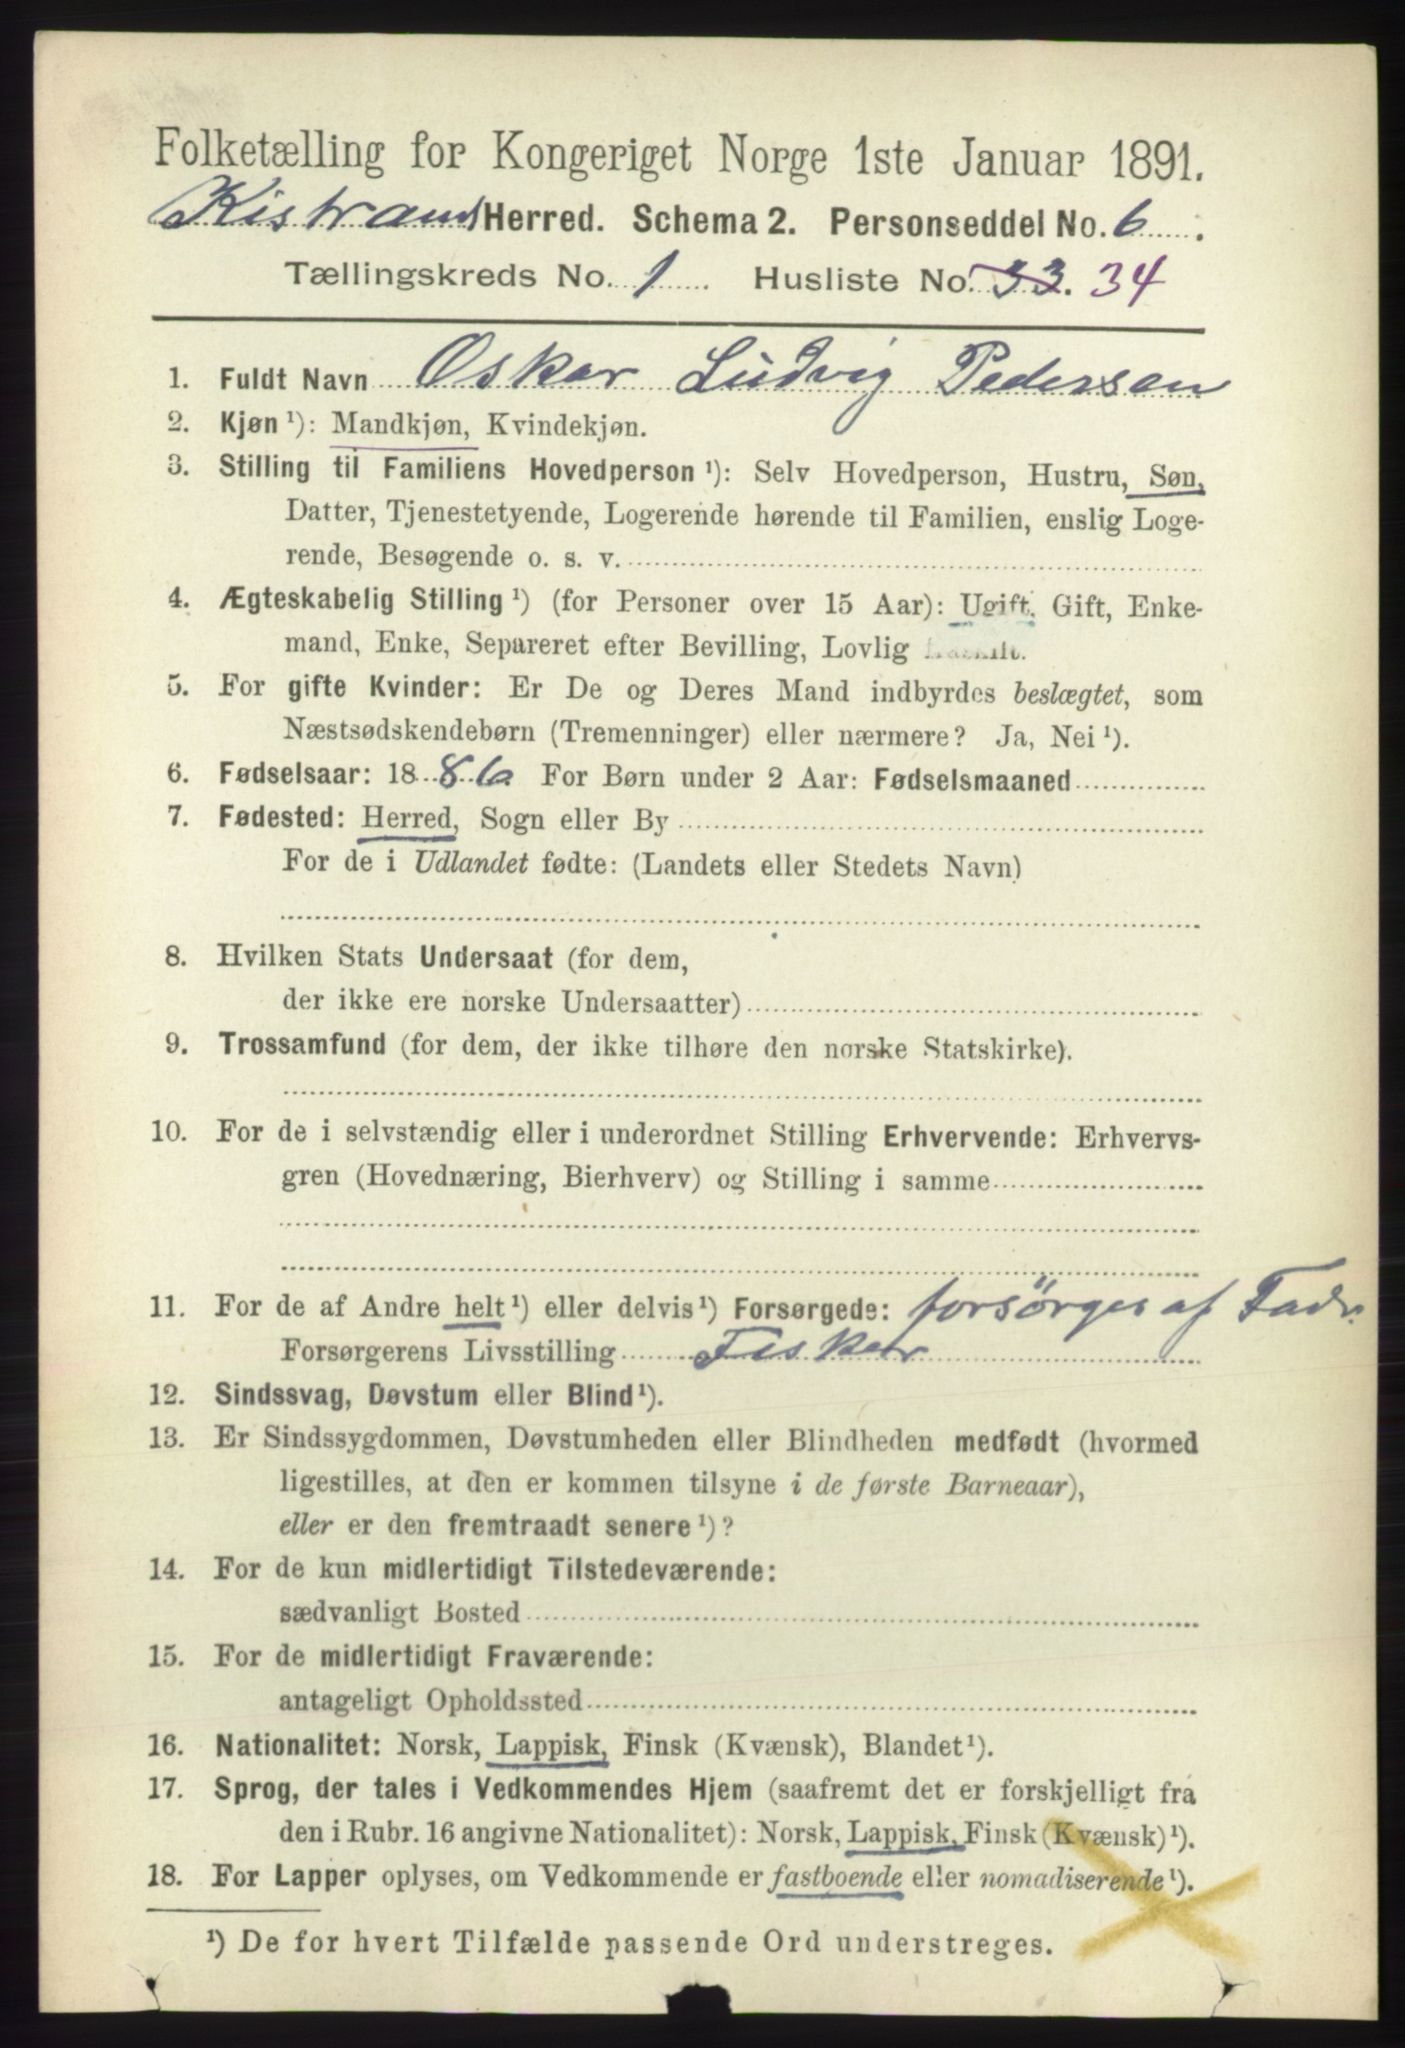 Folketælling for Kongeriget Norge 1ste Januar 1891.
Kistrand Herred. Schema 2. Personseddel No. 6.
Tællingskreds No. 1 Husliste No. 33. 34
1. Fuldt Navn Oskar Ludvig Pedersen
2. Kjøn ¹): Mandkjøn, Kvindekjøn.
3. Stilling til Familiens Hovedperson ¹): Selv Hovedperson, Hustru, Søn,
Datter, Tjenestetyende, Logerende hørende til Familien, enslig Loge-
rende, Besøgende o. s. v.
4. Ægteskabelig Stilling ¹) (for Personer over 15 Aar): Ugift, Gift, Enke-
mand, Enke, Separeret efter Bevilling, Lovlig fraskilt.
5. For gifte Kvinder: Er De og Deres Mand indbyrdes beslægtet, som
Næstsødskendebørn (Tremenninger) eller nærmere? Ja, Nei ¹).
6. Fødselsaar: 1886 For Børn under 2 Aar: Fødselsmaaned
7. Fødested: Herred, Sogn eller By
For de i Udlandet fødte: (Landets eller Stedets Navn)
8. Hvilken Stats Undersaat (for dem,
der ikke ere norske Undersaatter)
9. Trossamfund (for dem, der ikke tilhøre den norske Statskirke).
10. For de i selvstændig eller i underordnet Stilling Erhvervende: Erhvervs-
gren (Hovednæring, Bierhverv) og Stilling i samme
11. For de af Andre helt ¹) eller delvis ¹) Forsørgede: forsörges af Fadr.
Forsørgerens Livsstilling Fisker
12. Sindssvag, Døvstum eller Blind ¹).
13. Er Sindssygdommen, Døvstumheden eller Blindheden medfødt (hvormed
ligestilles, at den er kommen tilsyne i de første Barneaar),
eller er den fremtraadt senere ¹)?
14. For de kun midlertidigt Tilstedeværende:
sædvanligt Bosted
15. For de midlertidigt Fraværende:
antageligt Opholdssted
16. Nationalitet: Norsk, Lappisk, Finsk (Kvænsk), Blandet ¹).
17. Sprog, der tales i Vedkommendes Hjem (saafremt det er forskjelligt fra
den i Rubr. 16 angivne Nationalitet): Norsk, Lappisk, Finsk (Kvænsk) ¹).
18. For Lapper oplyses, om Vedkommende er fastboende eller nomadiserende ¹).
¹) De for hvert Tilfælde passende Ord understreges.